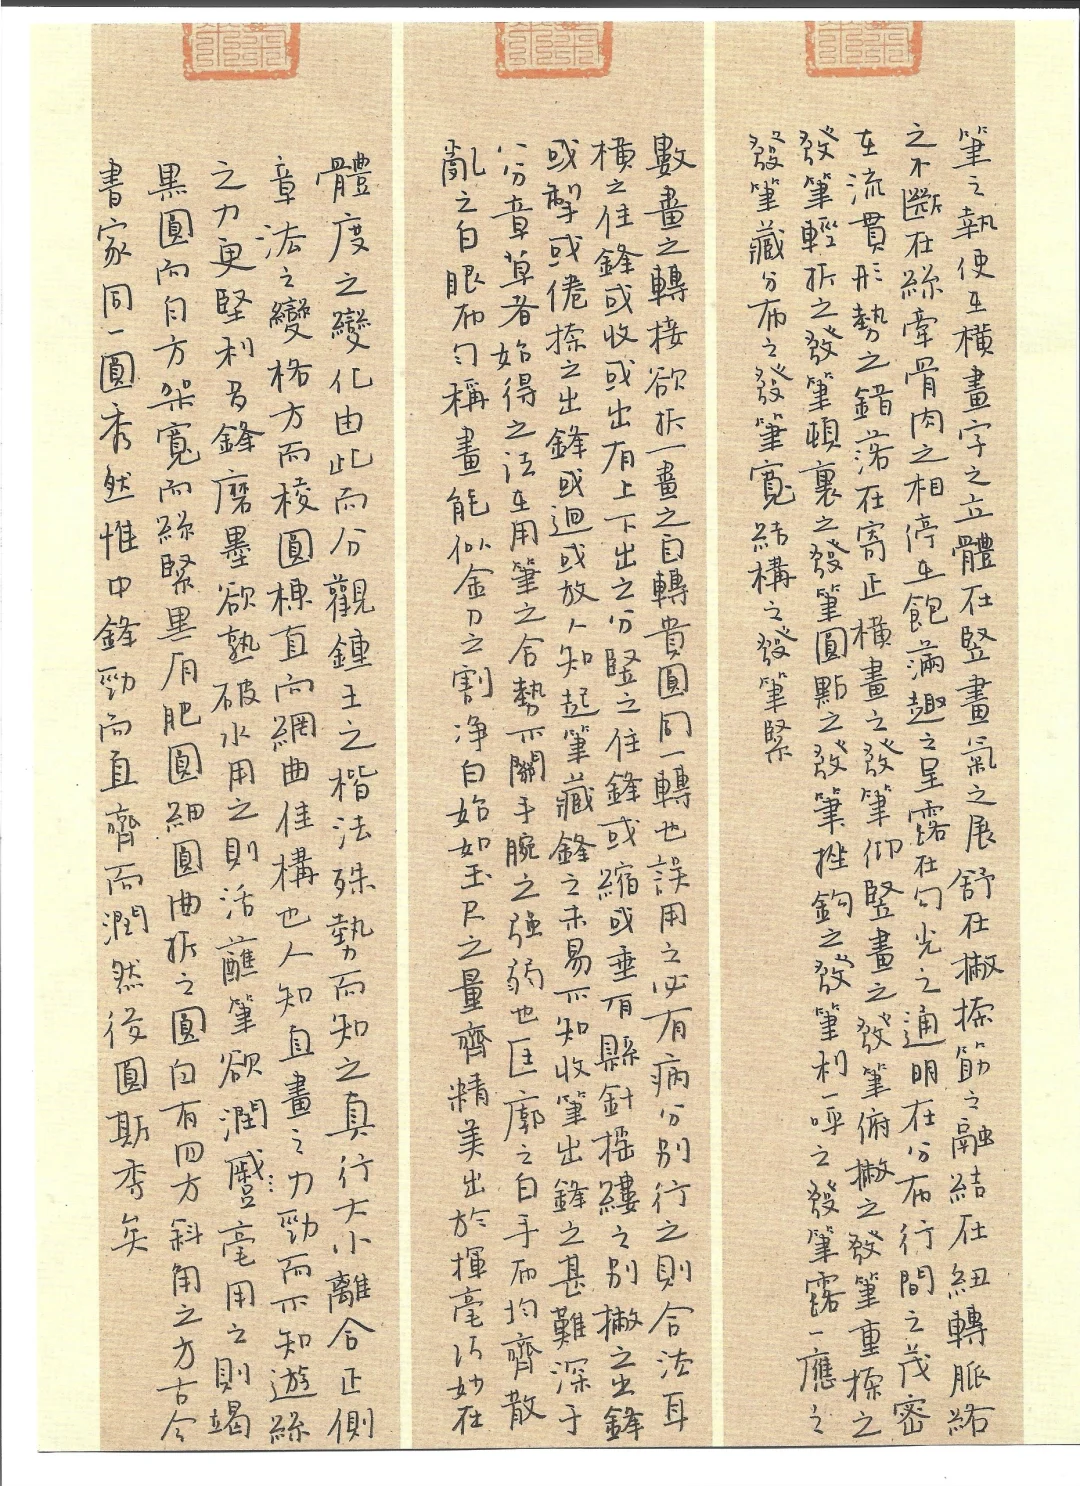 筆之執使在橫畫字之立體在竪畫氣之展舒在撇捺筋之融結在紐轉脈絡
之不斷在絲牽骨肉之相停在飽滿趣之呈露在勾光之通明在分布行間之茂密
在流貫形勢之錯落在寄正橫畫之發筆仰竪畫之發筆俯撇之發筆重捺之
發筆輕折之發筆頓裹之發筆圓點之發筆挫鉤之發筆利一呼之發筆露一應之
發筆藏分布之發筆寬結構之發筆緊
數畫之轉接欲折一畫之自轉貴圓同一轉也誤用之必有病分別行之則合法耳
橫之住鋒或收或出有上下出之分竪之住鋒或縮或垂有縣針搖縷之別撇之出鋒
或掣或倦捺之出鋒或迴或放人知起筆藏鋒之未易不知收筆出鋒之甚難深于
分章草者始得之法在用筆之合勢不關手腕之强弱也匡廓之白手布均齊散
亂之白眼布勻稱畫能似金刀之割净白始如玉尺之量齊精美出於揮毫巧妙在
體度之變化由此而分觀鍾王之楷法殊勢而知之真行大小離合正側
章法之變格方而棱圓棟直而綱曲佳構也人知直畫之力勁而不知遊絲
之力更堅利多鋒磨墨欲熟破水用之則活蘸筆欲潤蹙毫用之則竭
黑圓而白方架寬而絲緊畢肩肥圓細圓曲折之圓白有四方斜角之方古今
書家同一圓秀然惟中鋒勁而直齊而潤然後圓斯秀矣